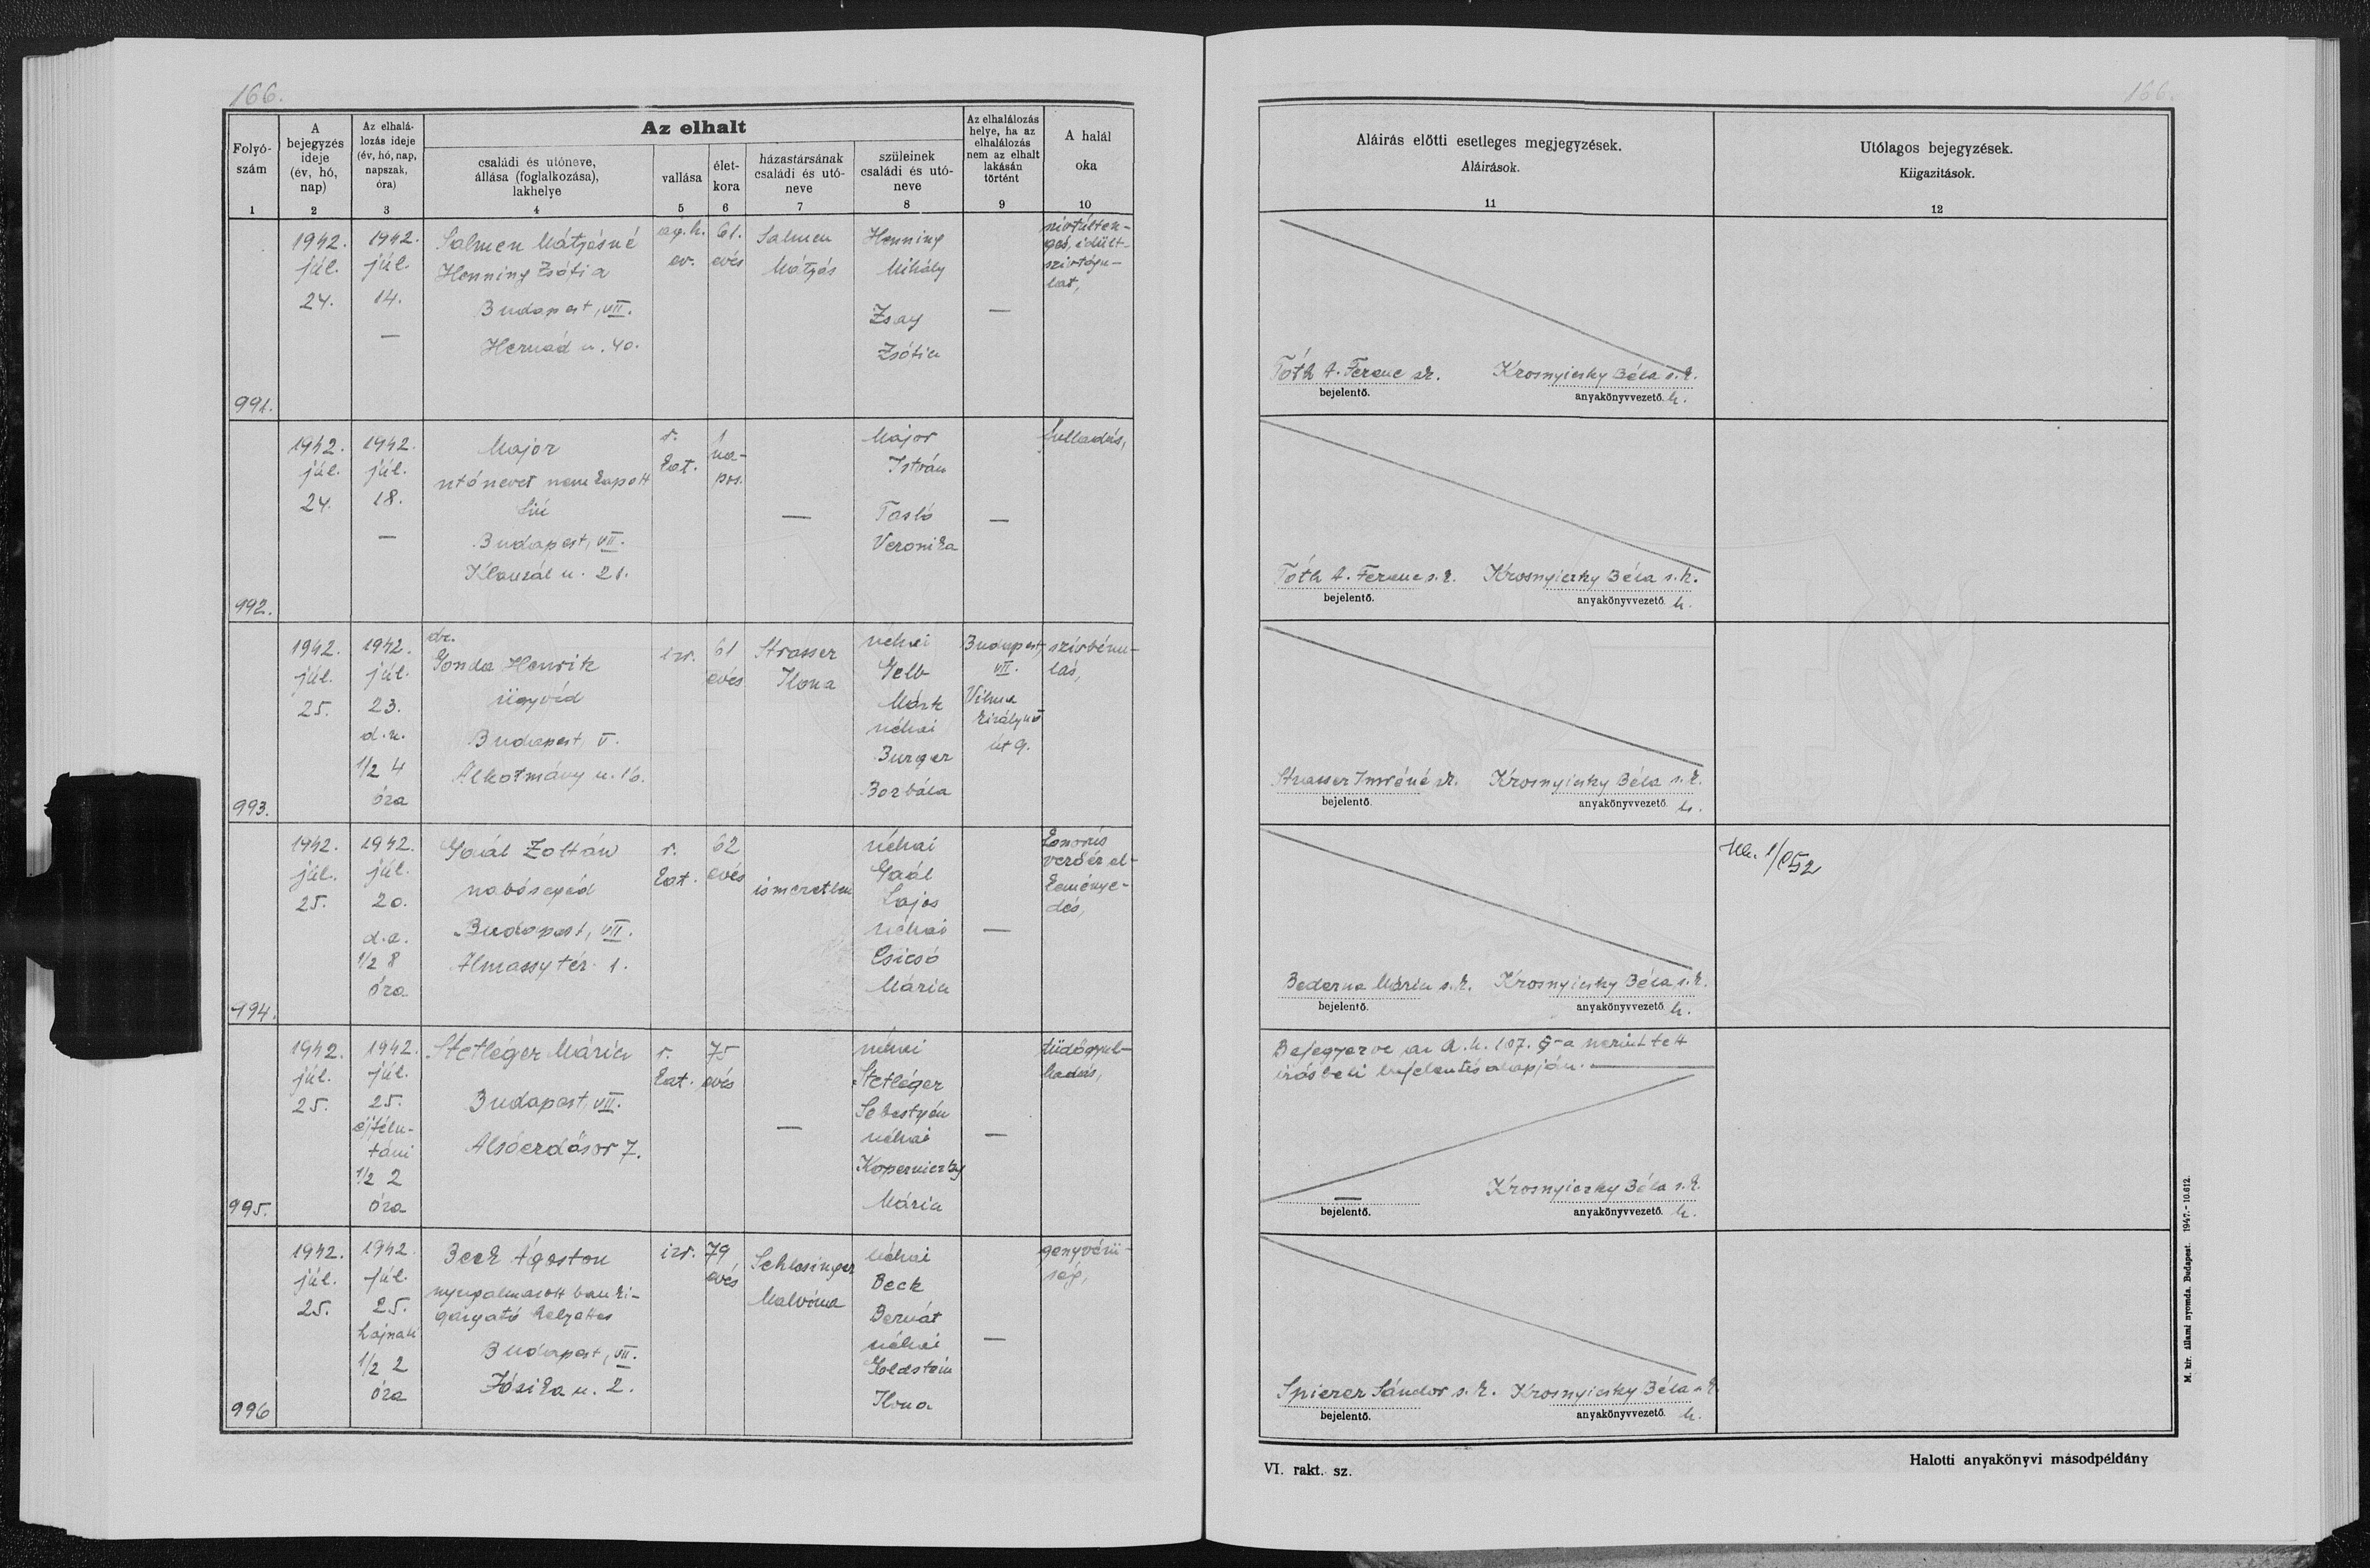 166.
166.
Folyó-
szám
A
bejegyzés
ideje
(év, hó,
nap)
Az elhalá-
lozás ideje
(év, hó, nap,
napszak,
óra)
Az elhalt
családi és utóneve,
állása (foglalkozása),
lakhelye
vallása
élet-
kora
házastársának
családi és utó-
neve
szüleinek
családi és utó-
neve
Az elhalálozás
helye, ha az
elhalálozás
nem az elhalt
lakásán
történt
A halál
oka
1 2 3 4 5 6 7 8 9 10
Aláírás előtti esetleges megjegyzések.
Aláírások.
11
Utólagos bejegyzések.
Kiigazítások.
12
991.
1942.
júl.
24.
1942.
júl.
14.
—
Salmen Mátyásné
Henning Zsófia
Budapest, VII.
Hernád u. 40.
ág. h.
ev.
61.
éves
Salmen
Mátyás
Henning
Mihály
Zsay
Zsófia
—
idült
lat,
Tóth A. Ferenc sk.
bejelentő.
Krosnyiczky Béla s.k.
anyakönyvvezető h.
992.
1942.
júl.
24.
1942.
júl.
18.
—
Major
utónevet nem kapott
fiú
Budapest, VII.
Klauzál u. 21.
r.
kat.
1
na-
pos.
—
Major
István
Tasló
Veronika
—
fulladás,
Tóth A. Ferenc s.k.
bejelentő.
Krosnyiczky Béla s.k.
anyakönyvvezető h.
993.
1942.
júl.
25.
1942.
júl.
23.
d.u.
1/2 4
óra
dr.
Gonda Henrik
ügyvéd
Budapest, V.
Alkotmány u. 16.
izr.
61
éves
Strasser
Ilona
néhai
Gelb
Márk
néhai
Burger
Borbála
Budapest,
VII.
Vilma
királynő
út 9.
szívbénu-
lás,
Strasser Imréné sk.
bejelentő.
Krosnyiczky Béla s.k.
anyakönyvvezető h.
994.
1942.
júl.
25.
1942.
júl.
20.
d.e.
1/2 8
óra
Gaál Zoltán
szabósegéd
Budapest, VII.
Almássy tér 1.
r.
kat.
62
éves
ismeretlen
néhai
Gaál
Lajos
néhai
Csicsó
Mária
—
koszorús
verőér el-
keménye-
dés,
Bederna Mária s.k.
bejelentő.
Krosnyiczky Béla s.k.
anyakönyvvezető h.
995.
1942.
júl.
25.
1942.
júl.
25.
éjfélu-
táni
1/2 2
óra
Stetléger Mária
Budapest, VII.
Alsóerdősor 7.
r.
kat.
75
éves
—
néhai
Stetléger
Sebestyén
néhai
Koperniczky
Mária
—
tüdőgyul-
ladás,
Bejegyezve az A.u. 107. §-a szerint tett
írásbeli bejelentés alapján.
—
bejelentő.
Krosnyiczky Béla s.k.
anyakönyvvezető h.
996
1942.
júl.
25.
1942.
júl.
25.
hajnali
1/2 2
óra
Beck Ágoston
nyugalmazott banki-
gazgató helyettes
Budapest, VII.
Jósika u. 2.
izr.
79
éves
Schlesinger
Malvina
néhai
Beck
Bernát
néhai
Goldstein
Ilona
—
genyvérü-
ség,
Spierer Sándor s.k.
bejelentő.
Krosnyiczky Béla s.k.
anyakönyvvezető h.
M. kir. állami nyomda. Budapest. 1947.-10.612.
VI. rakt. sz.
Halotti anyakönyvi másodpéldány